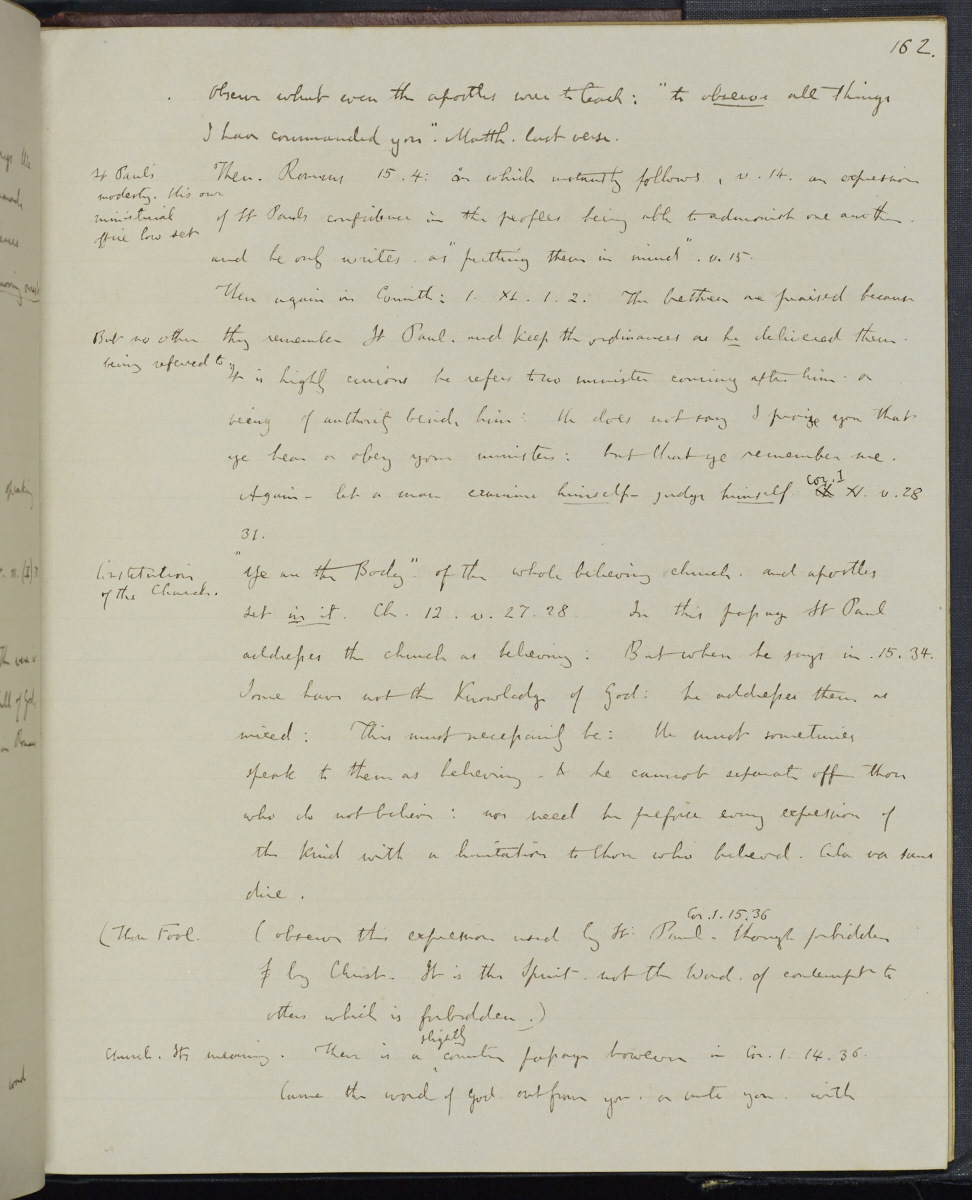 162.
Observe what even the apostles were to teach: "to observe all things
I have commanded you". Matth. last verse.
St Paul's
modesty. His own
ministerial
office low set
Then. Romans 15.4: in which instantly follows, v. 14. an expression
of St Pauls confidence in the peoples being able to admonish one another.
and he only writes. as "putting them in mind". v. 15.
Then again in Corinth: 1. XI. 1. 2. The brethren are praised because
But no other
being referred to
they remember St Paul. and keep the ordinances as he delivered them.
It is highly curious he refers to no minister coming after him. or
being of authority beside him: He does not say I praise you that
ye hear or obey your ministers: but that ye remember me.
Again - let a man examine himself - judge himself Cor. I XI. v. 28
31.
Constitution
of the Church.
"Ye are the Body" of the whole believing church. and apostles
set in it. Ch. 12. v. 27. 28. In this passage St Paul
addresses the church as believing: But when he says in. 15. 34.
Some have not the Knowledge of God: he addresses them as
mixed: This must necessarily be: He must sometimes
speak to them as believing - & he cannot separate off those
who do not believe: nor need he preface every expression of
the kind with a limitation to those who believed. Cela va sans
dire.
(Thou Fool.
Cor. 1. 15. 36
(observe this expression used by St. Paul - though forbidden
by Christ - It is the Spirit. not the Word. of contempt to
others which is forbidden.)
Church. Its meaning. There is a slightly counter passage however in Cor. 1. 14. 36.
Came the word of God out from you. or unto you. with